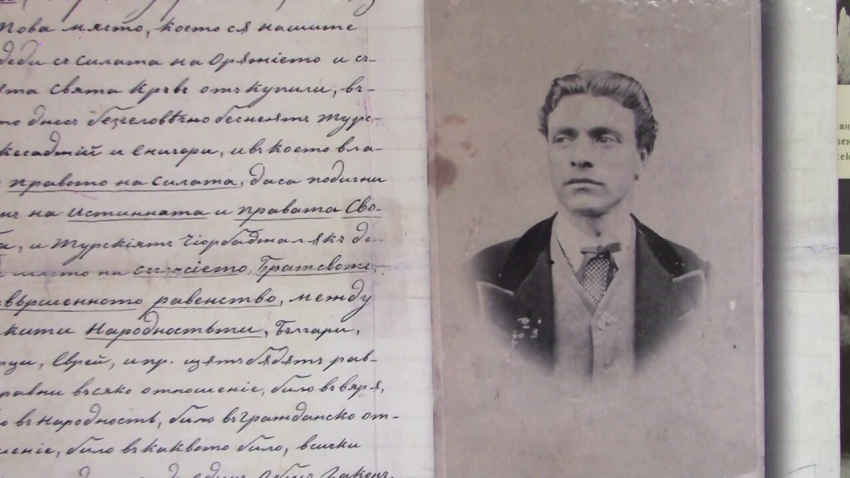 Това място, което ся нашите
деди съ силата на орѫжіето и съ
ята свята кръвъ откупили, въ-
то днесъ безчеловѣчно беснеятъ Турс-
кесаджій и еничери, и въ което вла-
правото на силата, да са подигни
на Истинната и правата Сво-
и Турскіятъ Чіорбаджалѫкъ да
място на съгласіето, Братсвото,
вършенното равенство, между
кити Народностьти, Българи,
рци, Еврей, и пр. щѫтъ бѫдѫтъ рав-
равни въ всяко отношеніе, било въ вяра,
въ народность, било въ гражданско от-
шеніе, било въ каквото било, всички
Законъ,